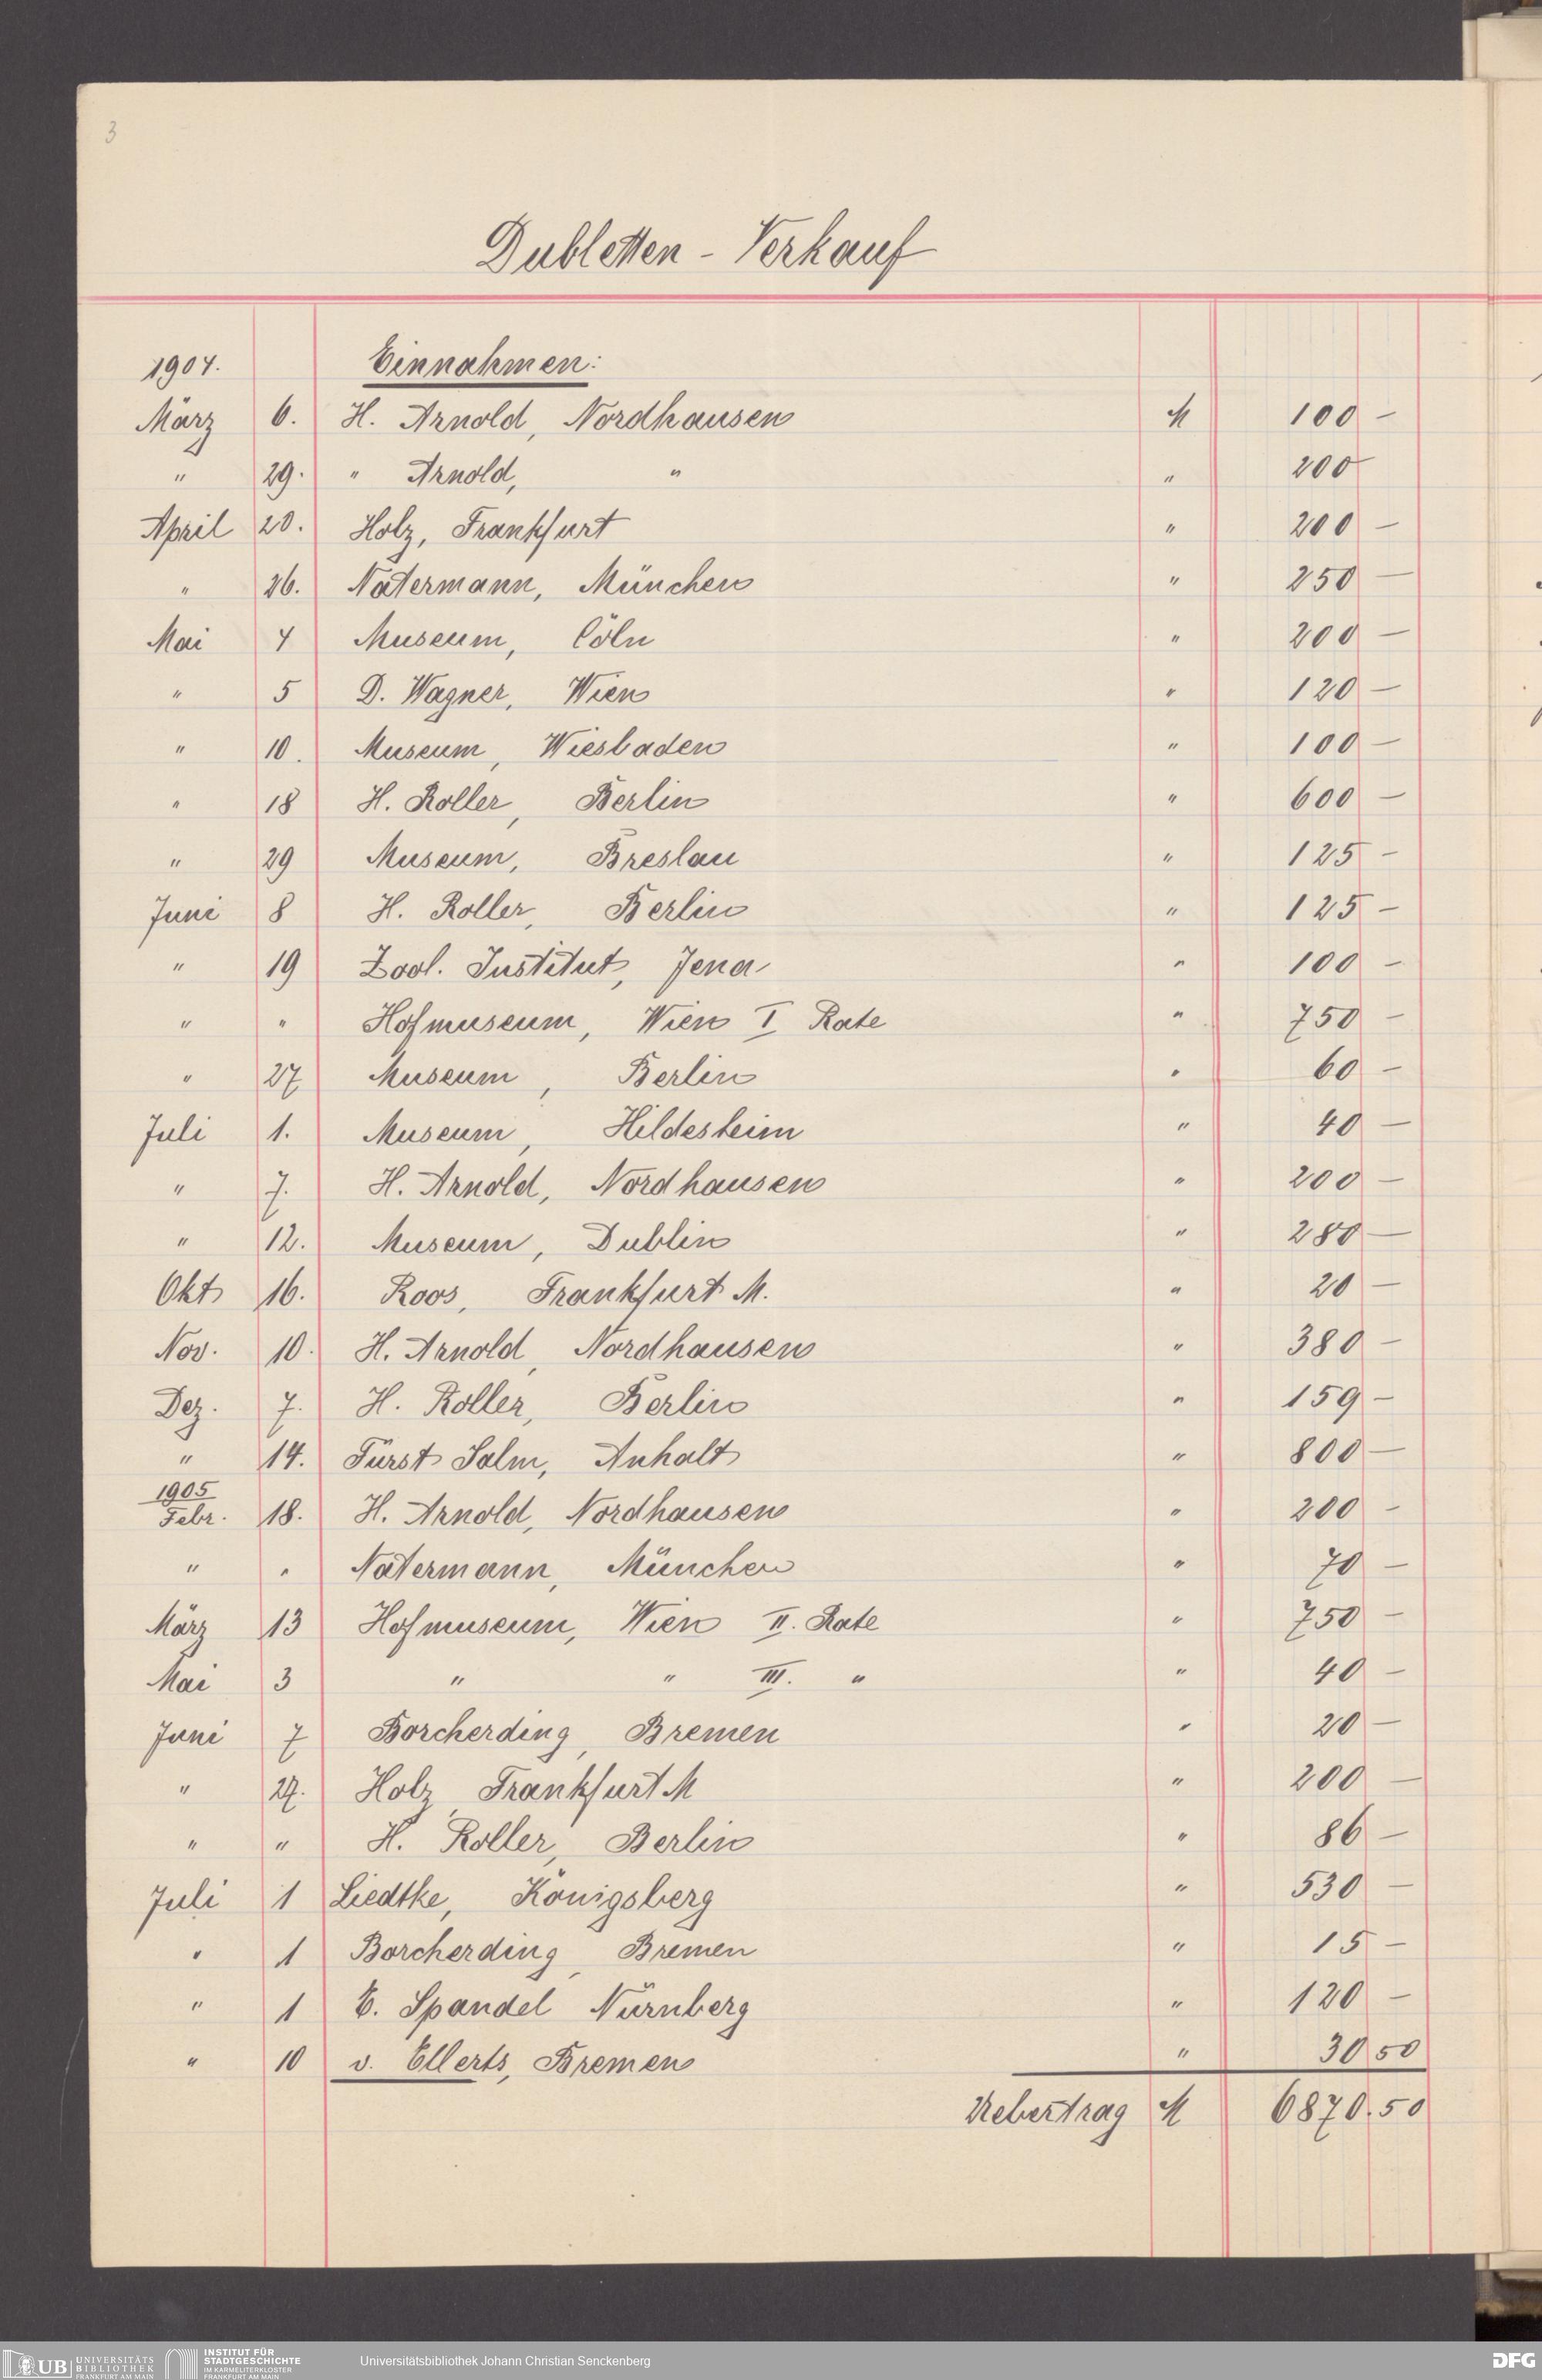 3
Dubletten - Verkauf
1904. Einnahmen:
März 6. H. Arnold, Nordhausen M 100 -
" 29. " Arnold, " " 200 -
April 20. Holz, Frankfurt " 200 -
" 26. Natermann, München " 250 -
Mai 4 Museum, Cöln " 200 -
" 5 D. Wagner, Wien " 120 -
" 10. Museum, Wiesbaden " 100 -
" 18 H. Roller, Berlin " 600 -
" 29 Museum, Breslau " 125 -
Juni 8 H. Roller, Berlin " 125 -
" 19 Zool. Institut, Jena " 100 -
" " Hofmuseum, Wien I Rate " 750 -
" 27 Museum, Berlin " 60 -
Juli 1. Museum, Hildesheim " 40 -
" 7. H. Arnold, Nordhausen " 200 -
" 12. Museum, Dublin " 280 -
Okt 16. Roos, Frankfurt M. " 20 -
Nov. 10. H. Arnold, Nordhausen " 380 -
Dez. 7. H. Roller, Berlin " 159 -
" 14. Fürst Salm, Anhalt " 800 -
1905
Febr. 18. H. Arnold, Nordhausen " 200 -
" " Natermann, München " 70 -
März 13 Hofmuseum, Wien II. Rate " 750 -
Mai 3 " " III. " " 40 -
Juni 7 Borcherding, Bremen " 20 -
" 27. Holz, Frankfurt M " 200 -
" " H. Roller, Berlin " 86 -
Juli 1 Liedtke, Königsberg " 530 -
" 1 Borcherding, Bremen " 15 -
" 1 E. Spandel Nürnberg " 120 -
" 10 v. Ellerts, Bremen " 30 50
Uebertrag M 6870.50
UB UNIVERSITÄTS BIBLIOTHEK FRANKFURT AM MAIN
INSTITUT FÜR STADTGESCHICHTE IM KARMELITERKLOSTER FRANKFURT AM MAIN
Universitätsbibliothek Johann Christian Senckenberg
DFG